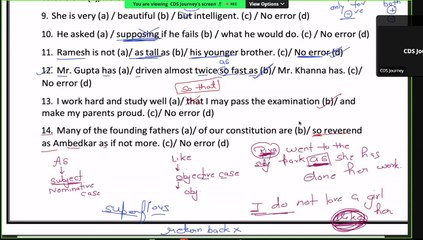 You are viewing CDS Journey's screen
View Options
only for
+ve
both
±
9. She is very (a)/ beautiful (b)/ but intelligent. (c)/ No error (d)
CDS Journey
10. He asked (a)/ supposing if he fails (b)/ what he would do. (c)/ No error (d)
11. Ramesh is not (a)/ as tall as (b)/ his younger brother. (c)/ No error (d)
as
12. Mr. Gupta has (a)/ driven almost twice so fast as (b)/ Mr. Khanna has. (c)/
No error (d)
so that
13. I work hard and study well (a)/ that I may pass the examination (b)/ and
make my parents proud. (c)/ No error (d)
14. Many of the founding fathers (a)/ of our constitution are (b)/ so reverend
as Ambedkar as if not more. (c)/ No error (d)
Riya went to the
park as she has
done her work.
As
Subject
Nominative
case
Like
objective case
obj
I do not love a girl
like her
superfluous
return back x